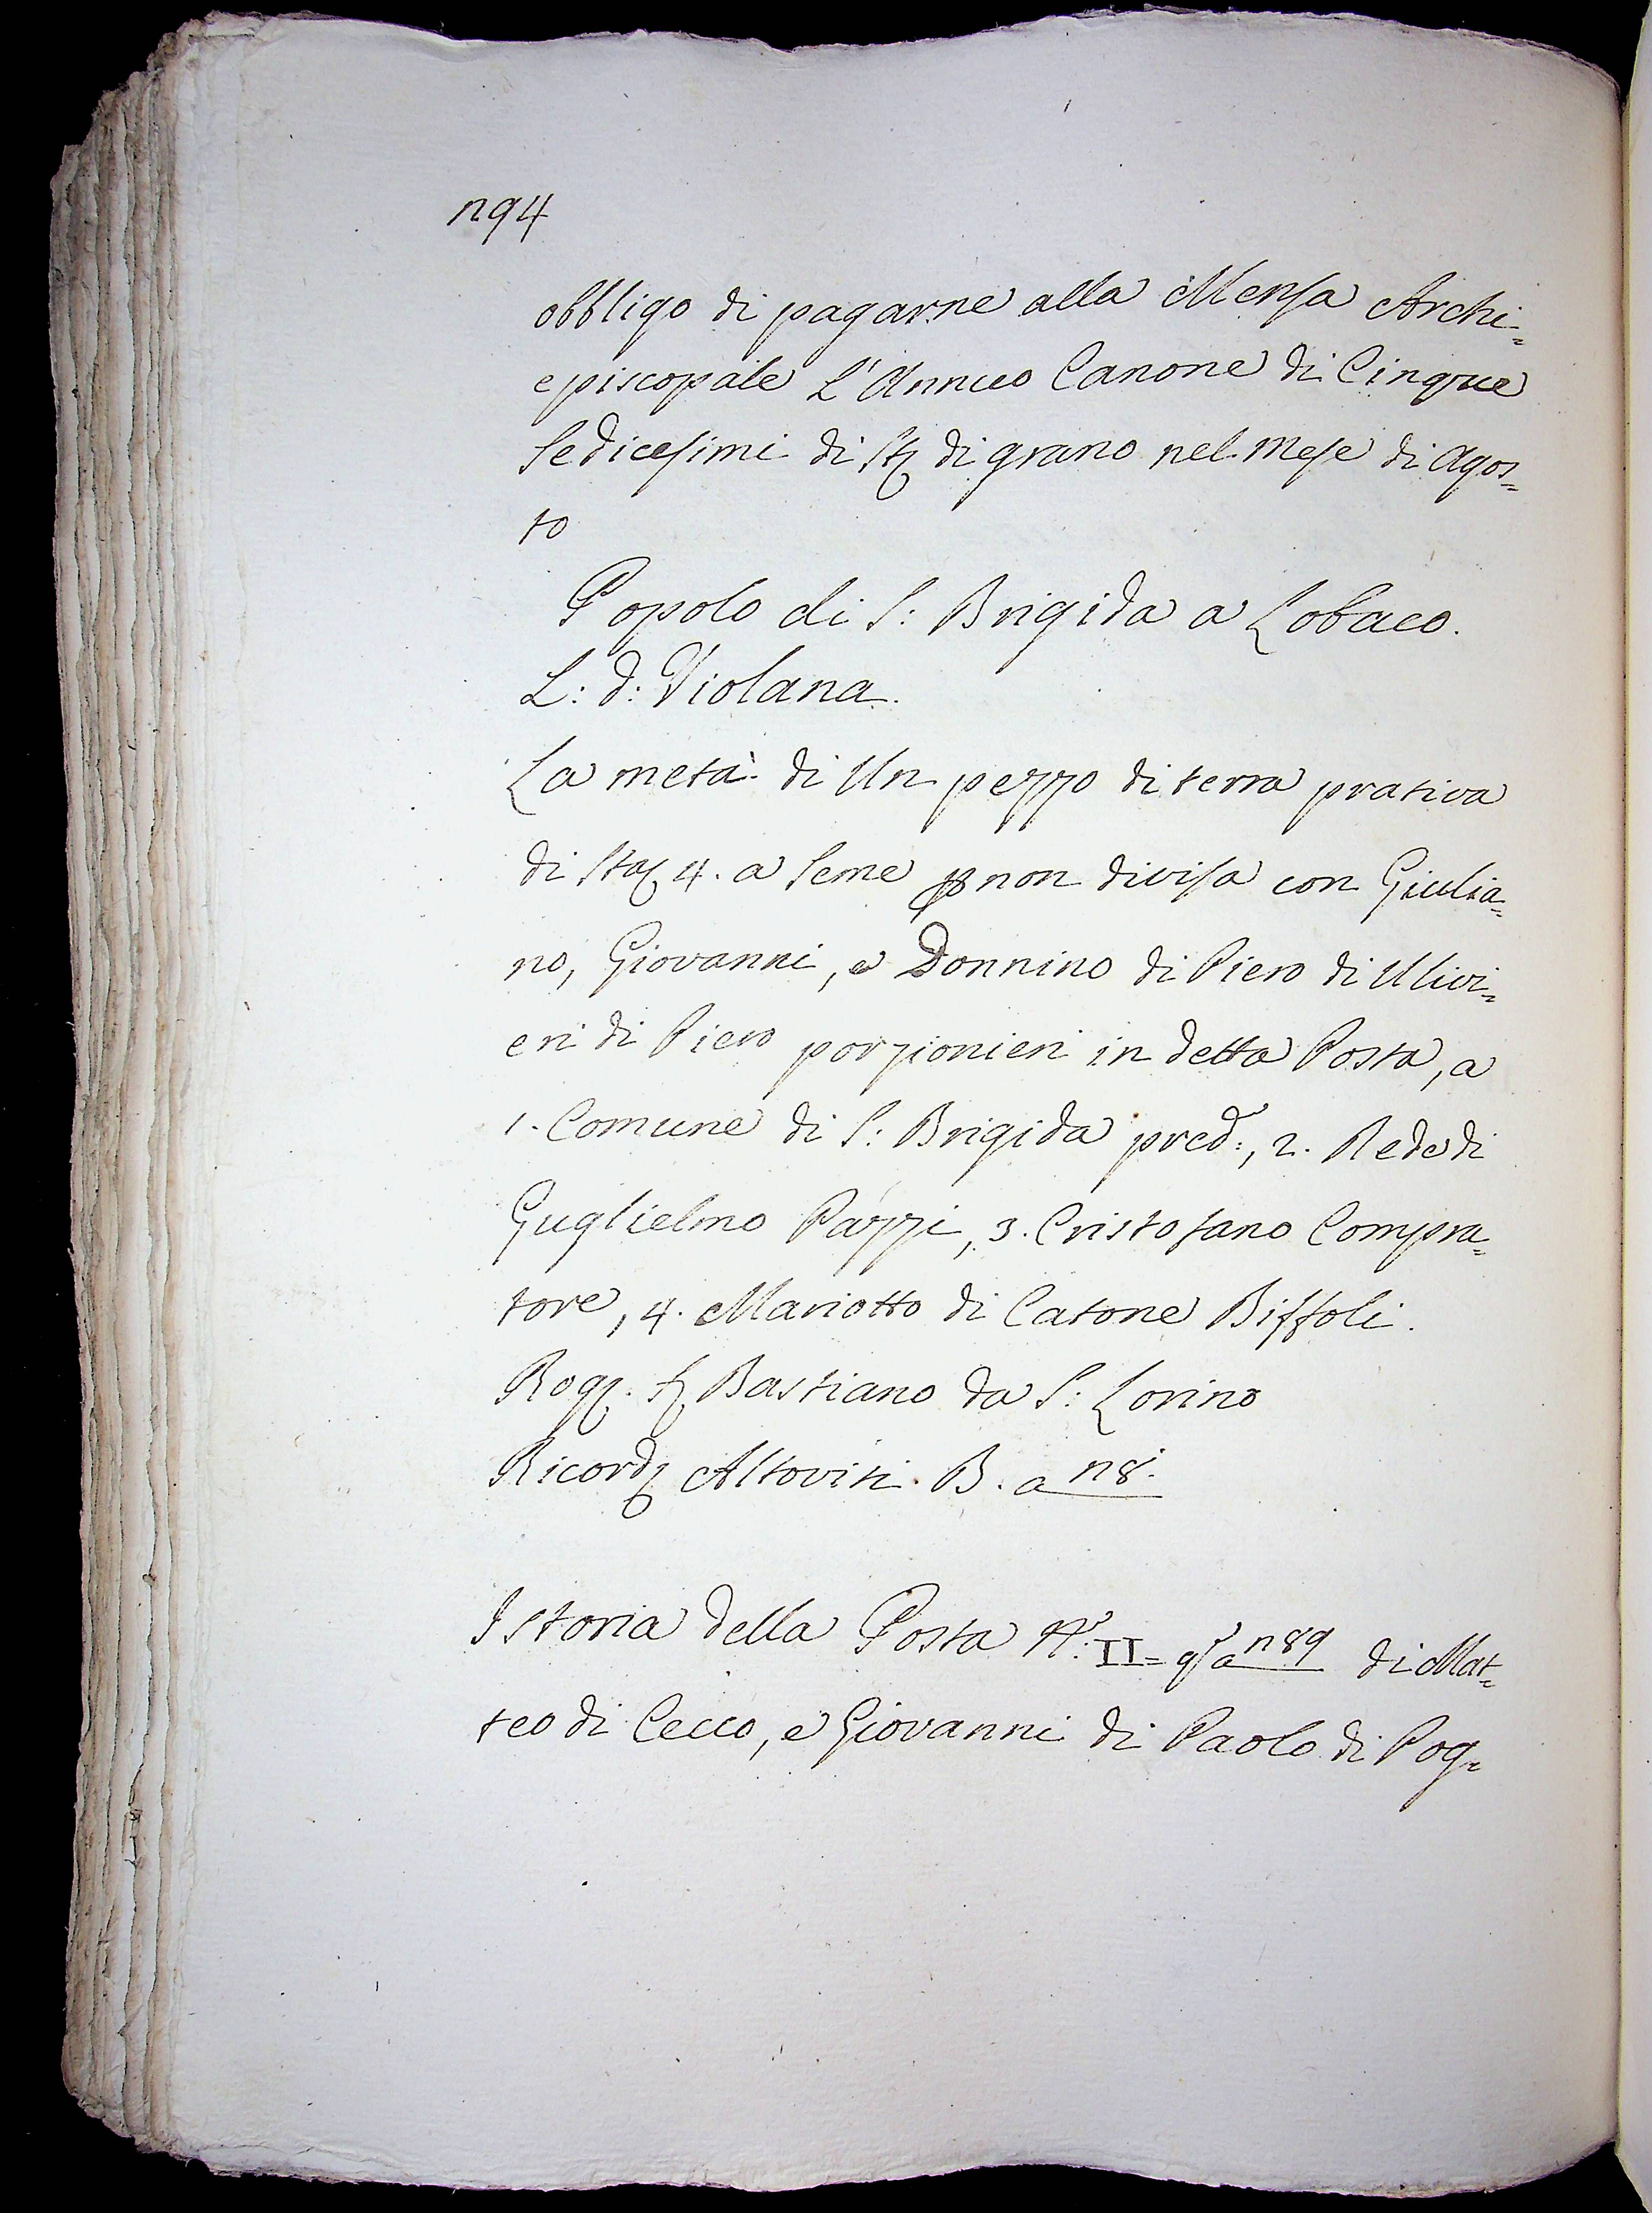 n94
obbligo di pagarne alla Mensa Archi=
episcopale L'Annuo Canone di Cinque
Sedicesimi di St di grano nel Mese di Agos=
to
Popolo di S: Brigida a Lobaco.
L: d: Violana.
La metà di Un pezzo di terra prativa
di Sta 4. a Seme non divisa con Giulia=
no, Giovanni, e Donnino di Piero di Ulivi=
eri di Piero porzionieri in detta Posta, a
1. Comune di S: Brigida pred:, 2. Rede di
Guglielmo Pazzi, 3. Cristofano Compra=
tore, 4. Mariotto di Catone Biffoli.
Rog. Bastiano da S: Lorino
Ricord Altoviti. B. a n8.

Istoria della Posta N: II= a n89 di Mat=
teo di Cecco, e Giovanni di Paolo di Pog=